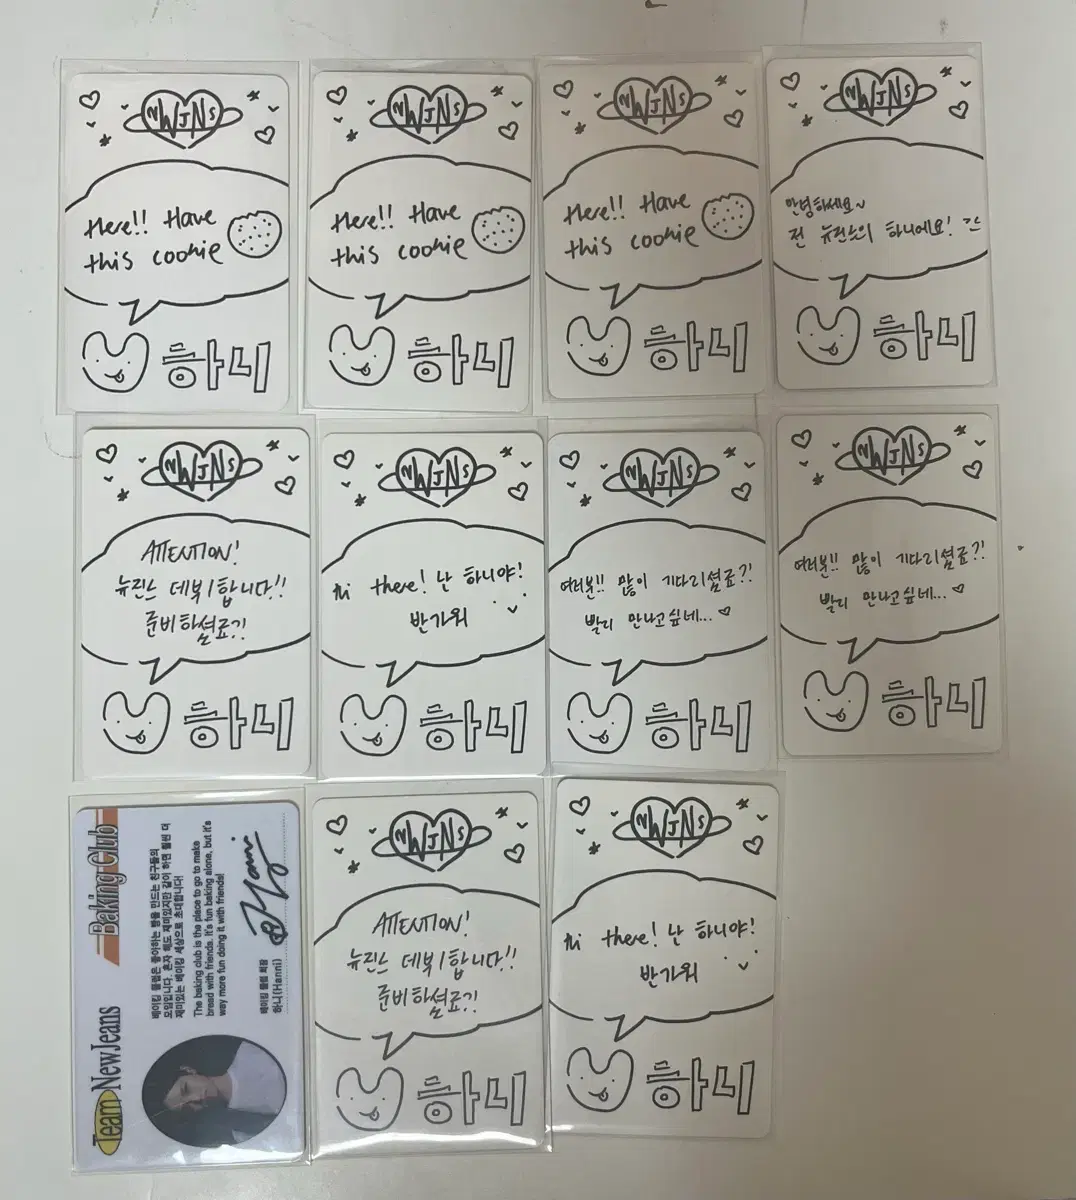 NWJNS
Here!! Have
this cookie
하니
NWJNS
Here!! Have
this cookie
하니
NWJNS
Here!! Have
this cookie
하니
NWJNS
안녕하세요~
전 뉴진스의 하니에요!
하니
NWJNS
ATTENTION!
뉴진스 데뷔!합니다!!
준비하셨죠?!
하니
NWJNS
Hi there! 난 하니야!
반가워
하니
NWJNS
여러분!! 많이 기다리셨죠?!
빨리 만나고싶네...
하니
NWJNS
여러분!! 많이 기다리셨죠?!
빨리 만나고싶네...
하니
Team NewJeans
Baking Club
베이킹 클럽은 좋아하는 빵을 만드는 친구들의
모임입니다. 혼자 해도 재미있지만 같이 하면 훨씬 더
재미있는 베이킹 세상으로 초대합니다!
The baking club is the place to go to make
bread with friends. It's fun baking alone, but it's
way more fun doing it with friends!
베이킹 클럽 회장
하니(Hanni)
Hanni
NWJNS
ATTENTION!
뉴진스 데뷔!합니다!!
준비하셨죠?!
하니
NWJNS
Hi there! 난 하니야!
반가워
하니